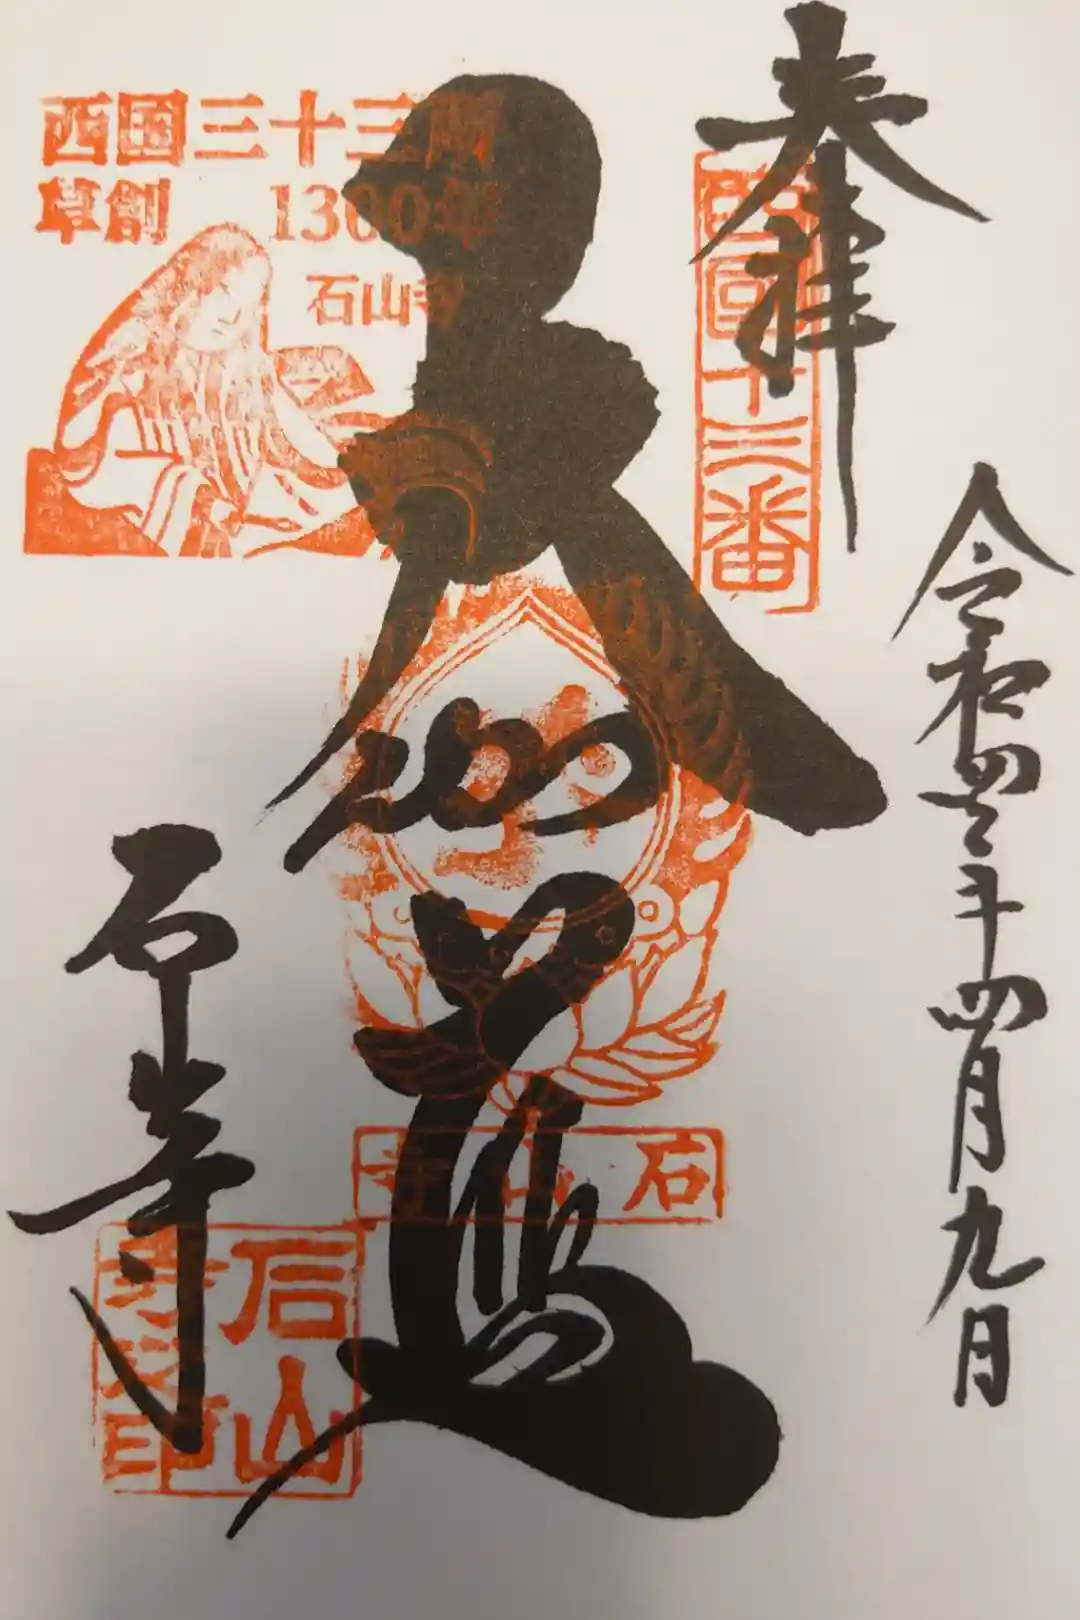 奉拝
西國十三番
令和四年四月九日
大伽藍
西国三十三所
草創 1300年
石山寺
石山寺
石山寺
石山
寺之印